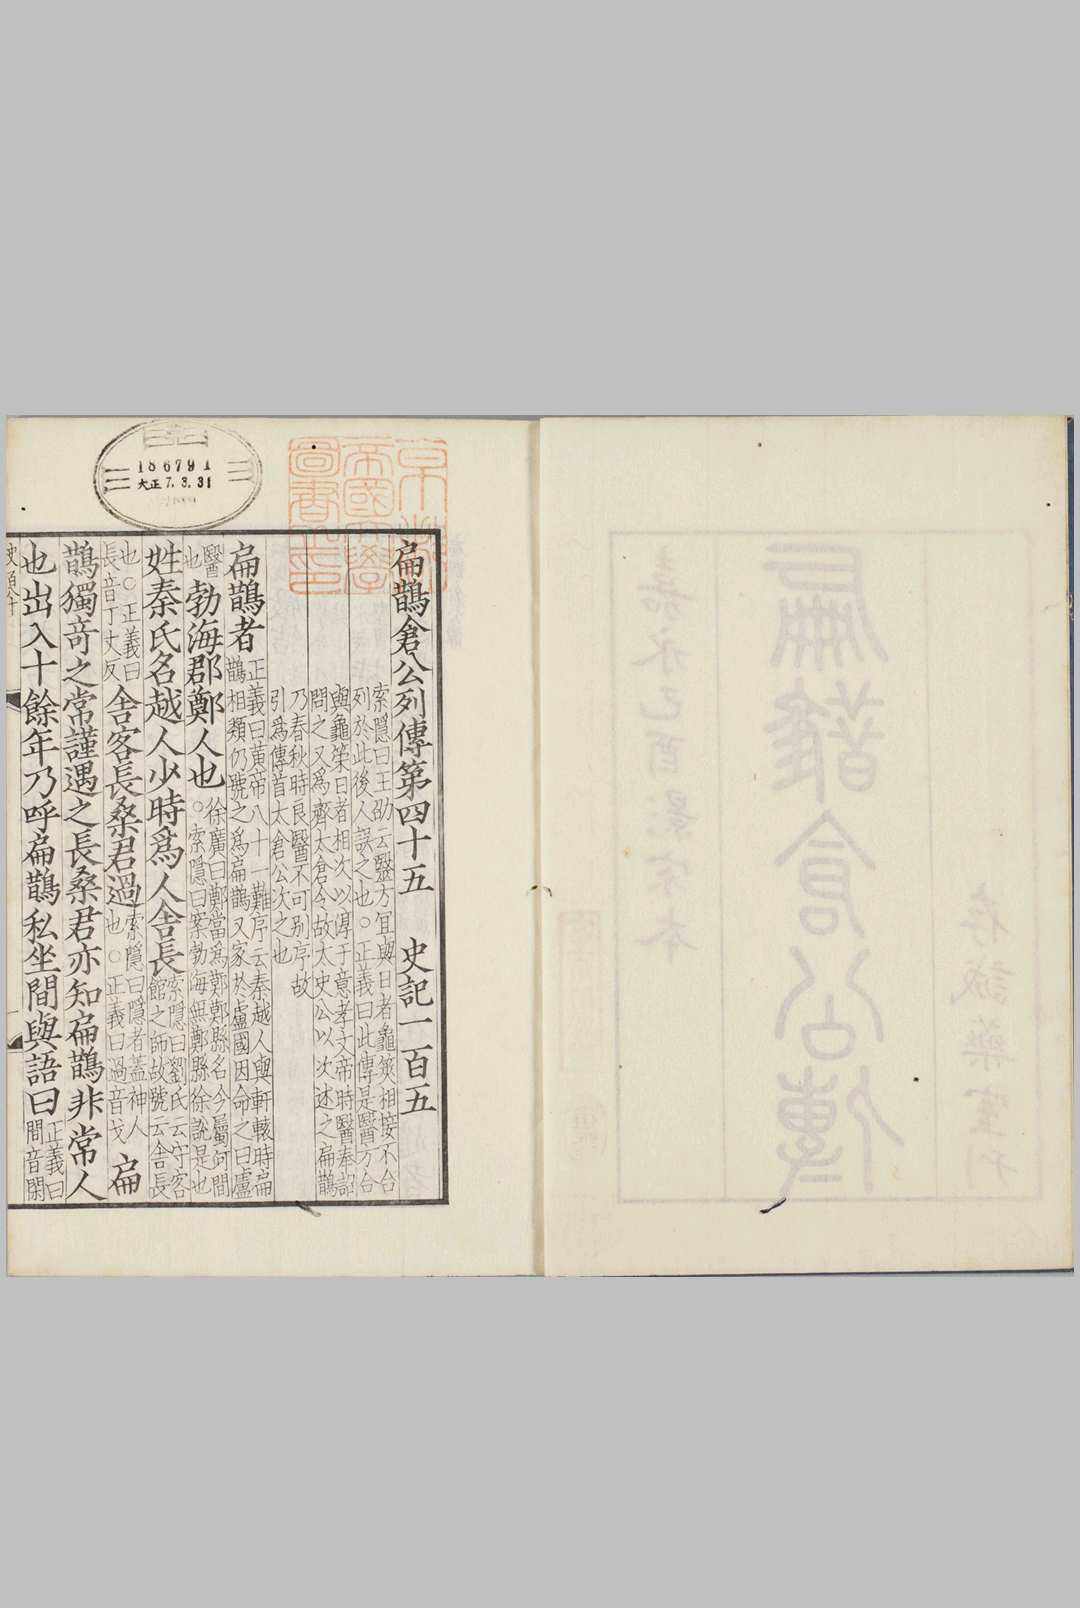 存誠藥室刊
扁鵲倉公傳
嘉永己酉影宋本
186791
大正7.3.31
京都帝國大學圖書之印
扁鵲倉公列傳第四十五 史記一百五
索隱曰王劭云醫方宜與日者龜筴相接不合
列於此後人誤之也○正義曰此傳是醫方合
與龜筞日者相次以淳于意孝文帝時醫奉詔
問之又爲齊太倉令故太史公以次述之扁鵲
乃春秋時良醫不可别序故
引爲傳首太倉公次之也
扁鵲者
正義曰黃帝八十一難序云秦越人與軒轅時扁
鵲相類仍號之爲扁鵲又家於盧國因命之曰盧
醫
也
勃海郡鄭人也
徐廣曰鄭當爲鄚鄚縣名今屬河間
○索隱曰案勃海無鄭縣徐說是也
姓秦氏名越人少時爲人舍長
索隱曰劉氏云守客
館之師故號云舍長
也○正義曰
長音丁丈反
舍客長桑君過
索隱曰隱者蓋神人
也○正義曰過音戈
扁
鵲獨奇之常謹遇之長桑君亦知扁鵲非常人
也出入十餘年乃呼扁鵲私坐間與語曰
正義曰
間音閑